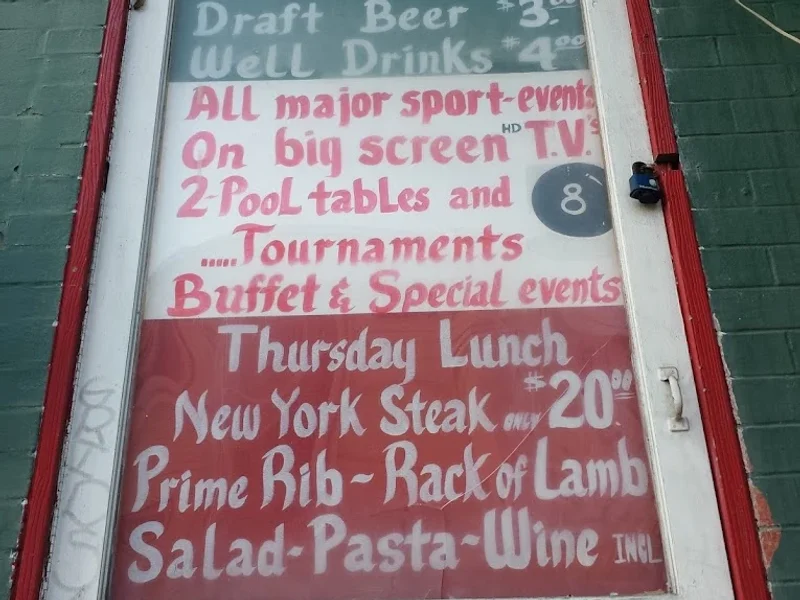 Draft Beer $3.00
Well Drinks $4.00
All major sport-events
On big screen HD T.V.'s
2-Pool tables and 8
.....Tournaments
Buffet & Special events
Thursday Lunch
New York Steak only $20.00
Prime Rib ~ Rack of Lamb
Salad-Pasta-Wine INCL